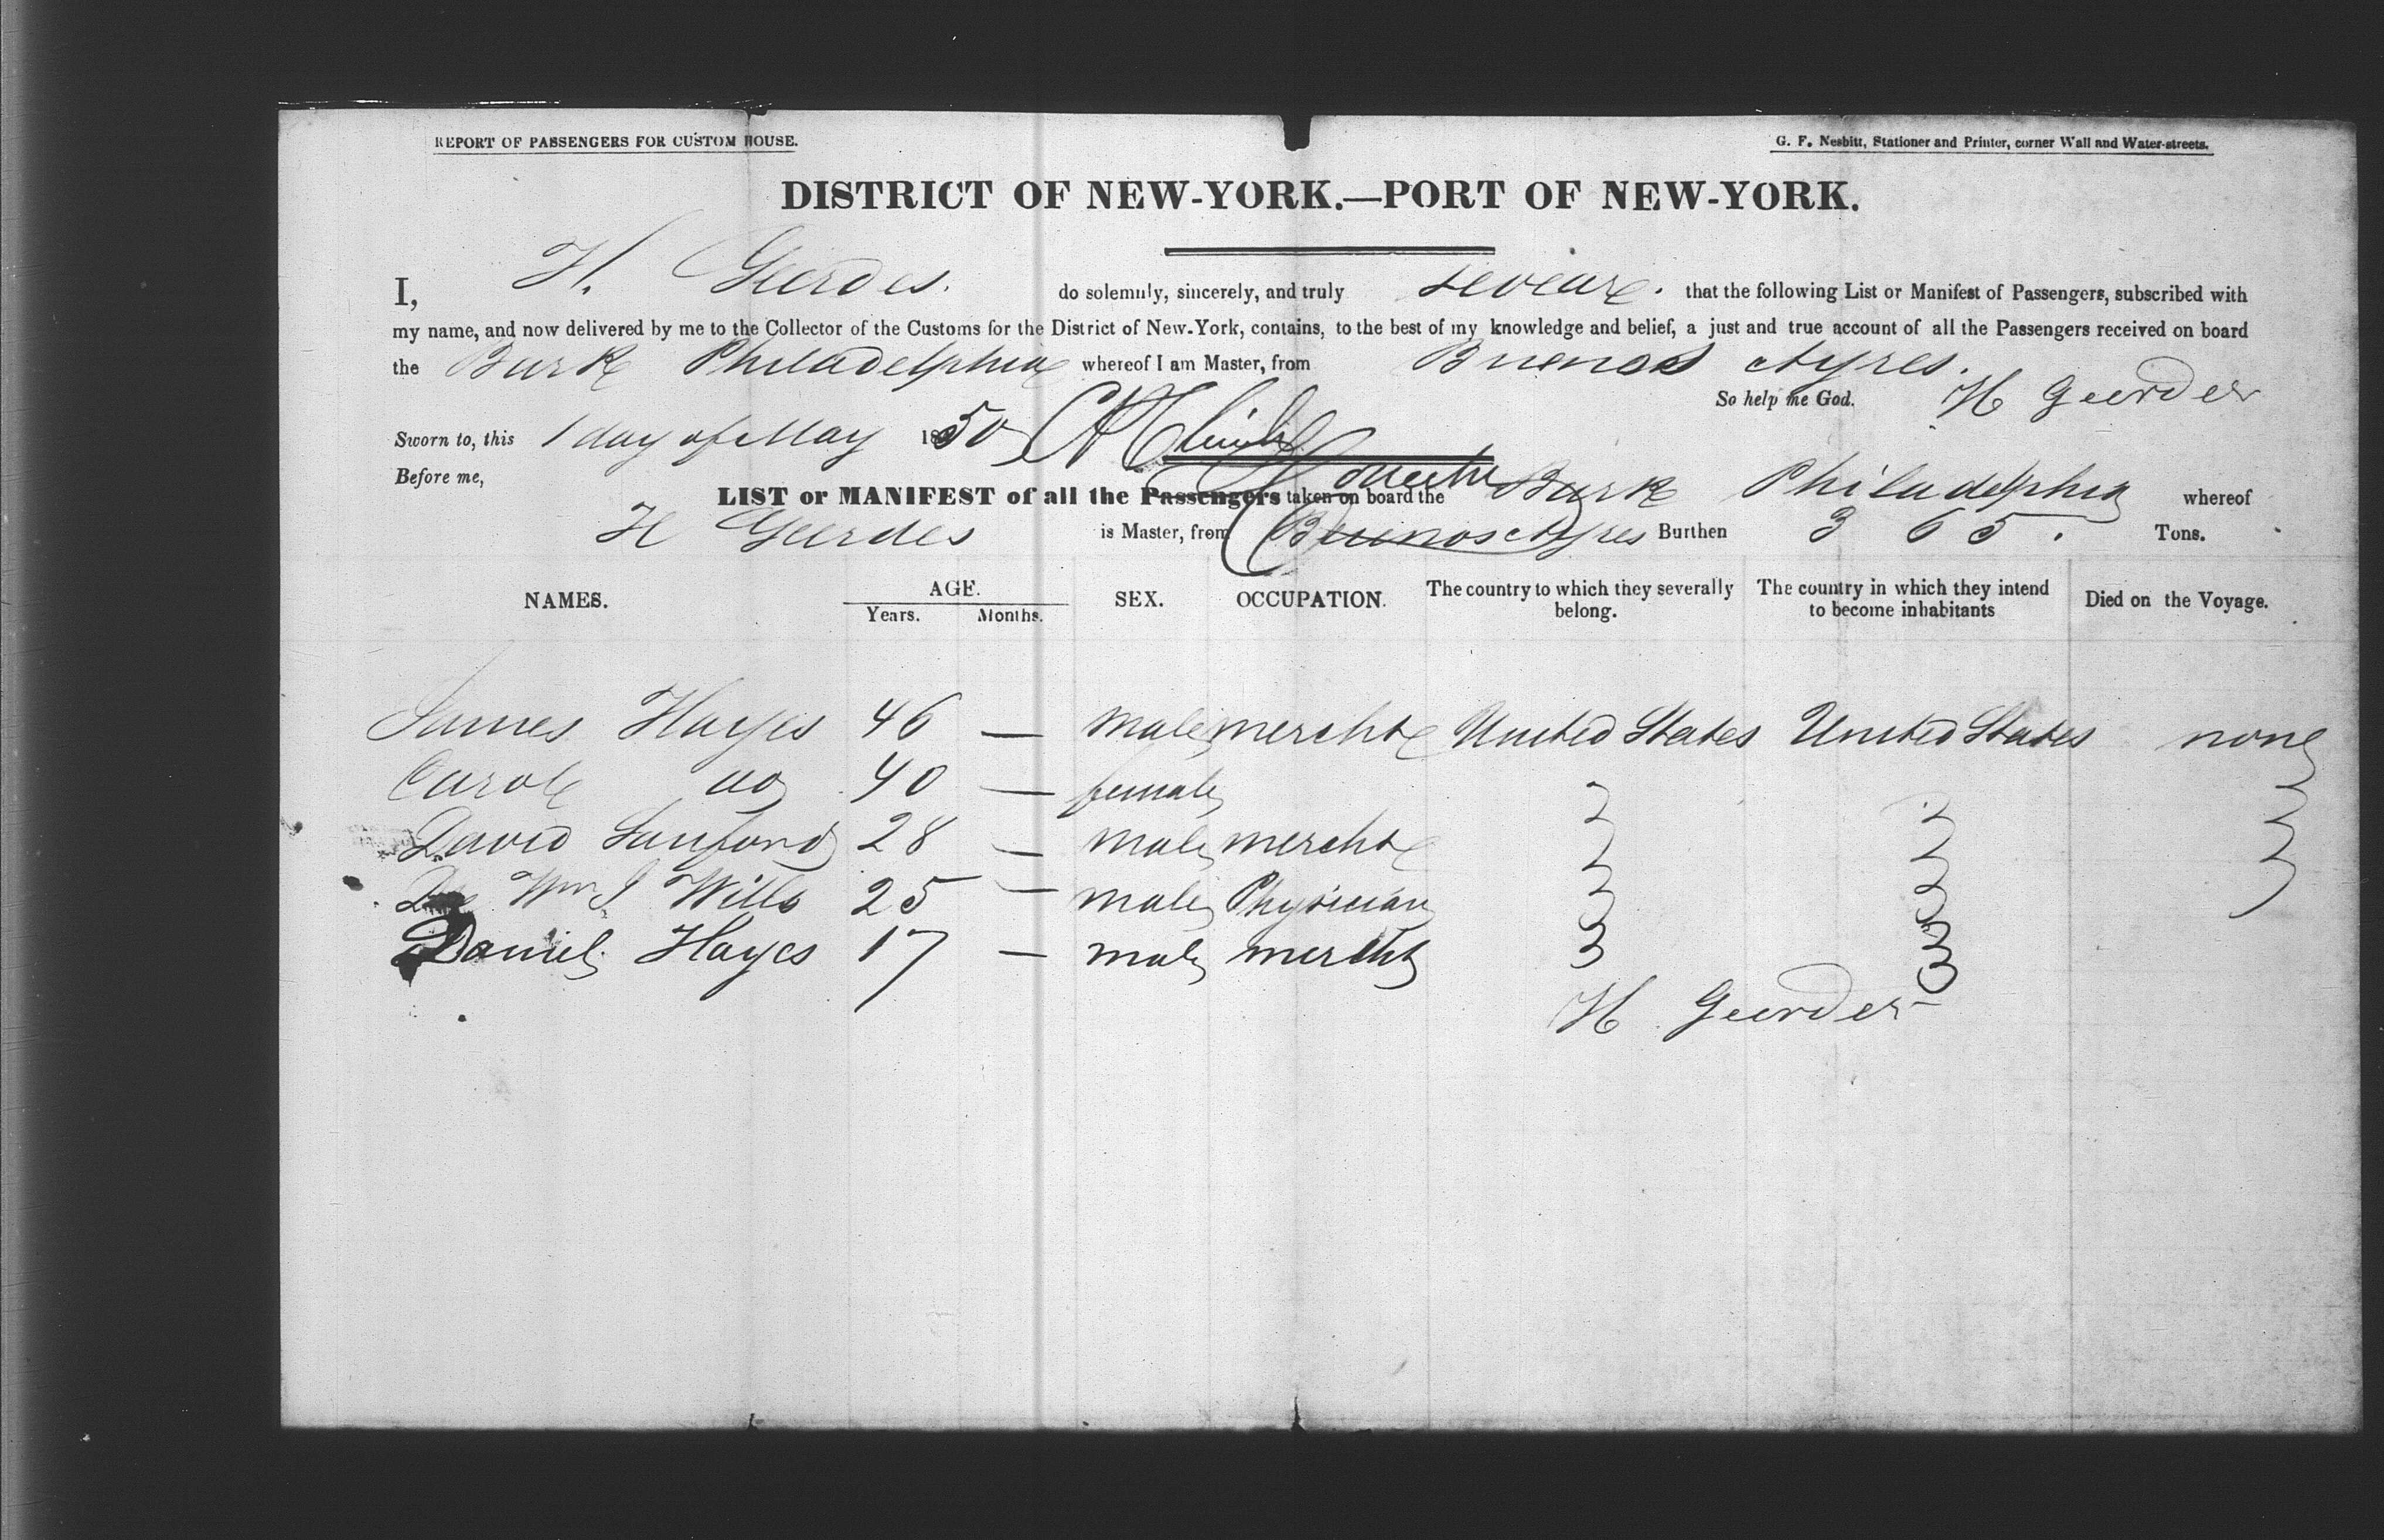 REPORT OF PASSENGERS FOR CUSTOM HOUSE.
G. F. Nesbitt, Stationer and Printer, corner Wall and Water-streets.
DISTRICT OF NEW-YORK.—PORT OF NEW-YORK.
I, H. Geerdes. do solemnly, sincerely, and truly swear. that the following List or Manifest of Passengers, subscribed with
my name, and now delivered by me to the Collector of the Customs for the District of New-York, contains, to the best of my knowledge and belief, a just and true account of all the Passengers received on board
the Bark Philadelphia whereof I am Master, from Buenos Ayres.
So help me God. H Geerdes
Sworn to, this 1 day of May 1850
Before me,
LIST or MANIFEST of all the Passengers taken on board the Bark Philadelphia whereof
H Geerdes is Master, from Buenos Ayres Burthen 365. Tons.
NAMES. AGE. Years. Months. SEX. OCCUPATION. The country to which they severally belong. The country in which they intend to become inhabitants Died on the Voyage.
James Hayes 46 — male mercht United States United States none
Carole do 40 — female
David Sanford 28 — male mercht
Wm J Wills 25 — male Physician
Daniel Hayes 17 — male mercht
H Geerdes